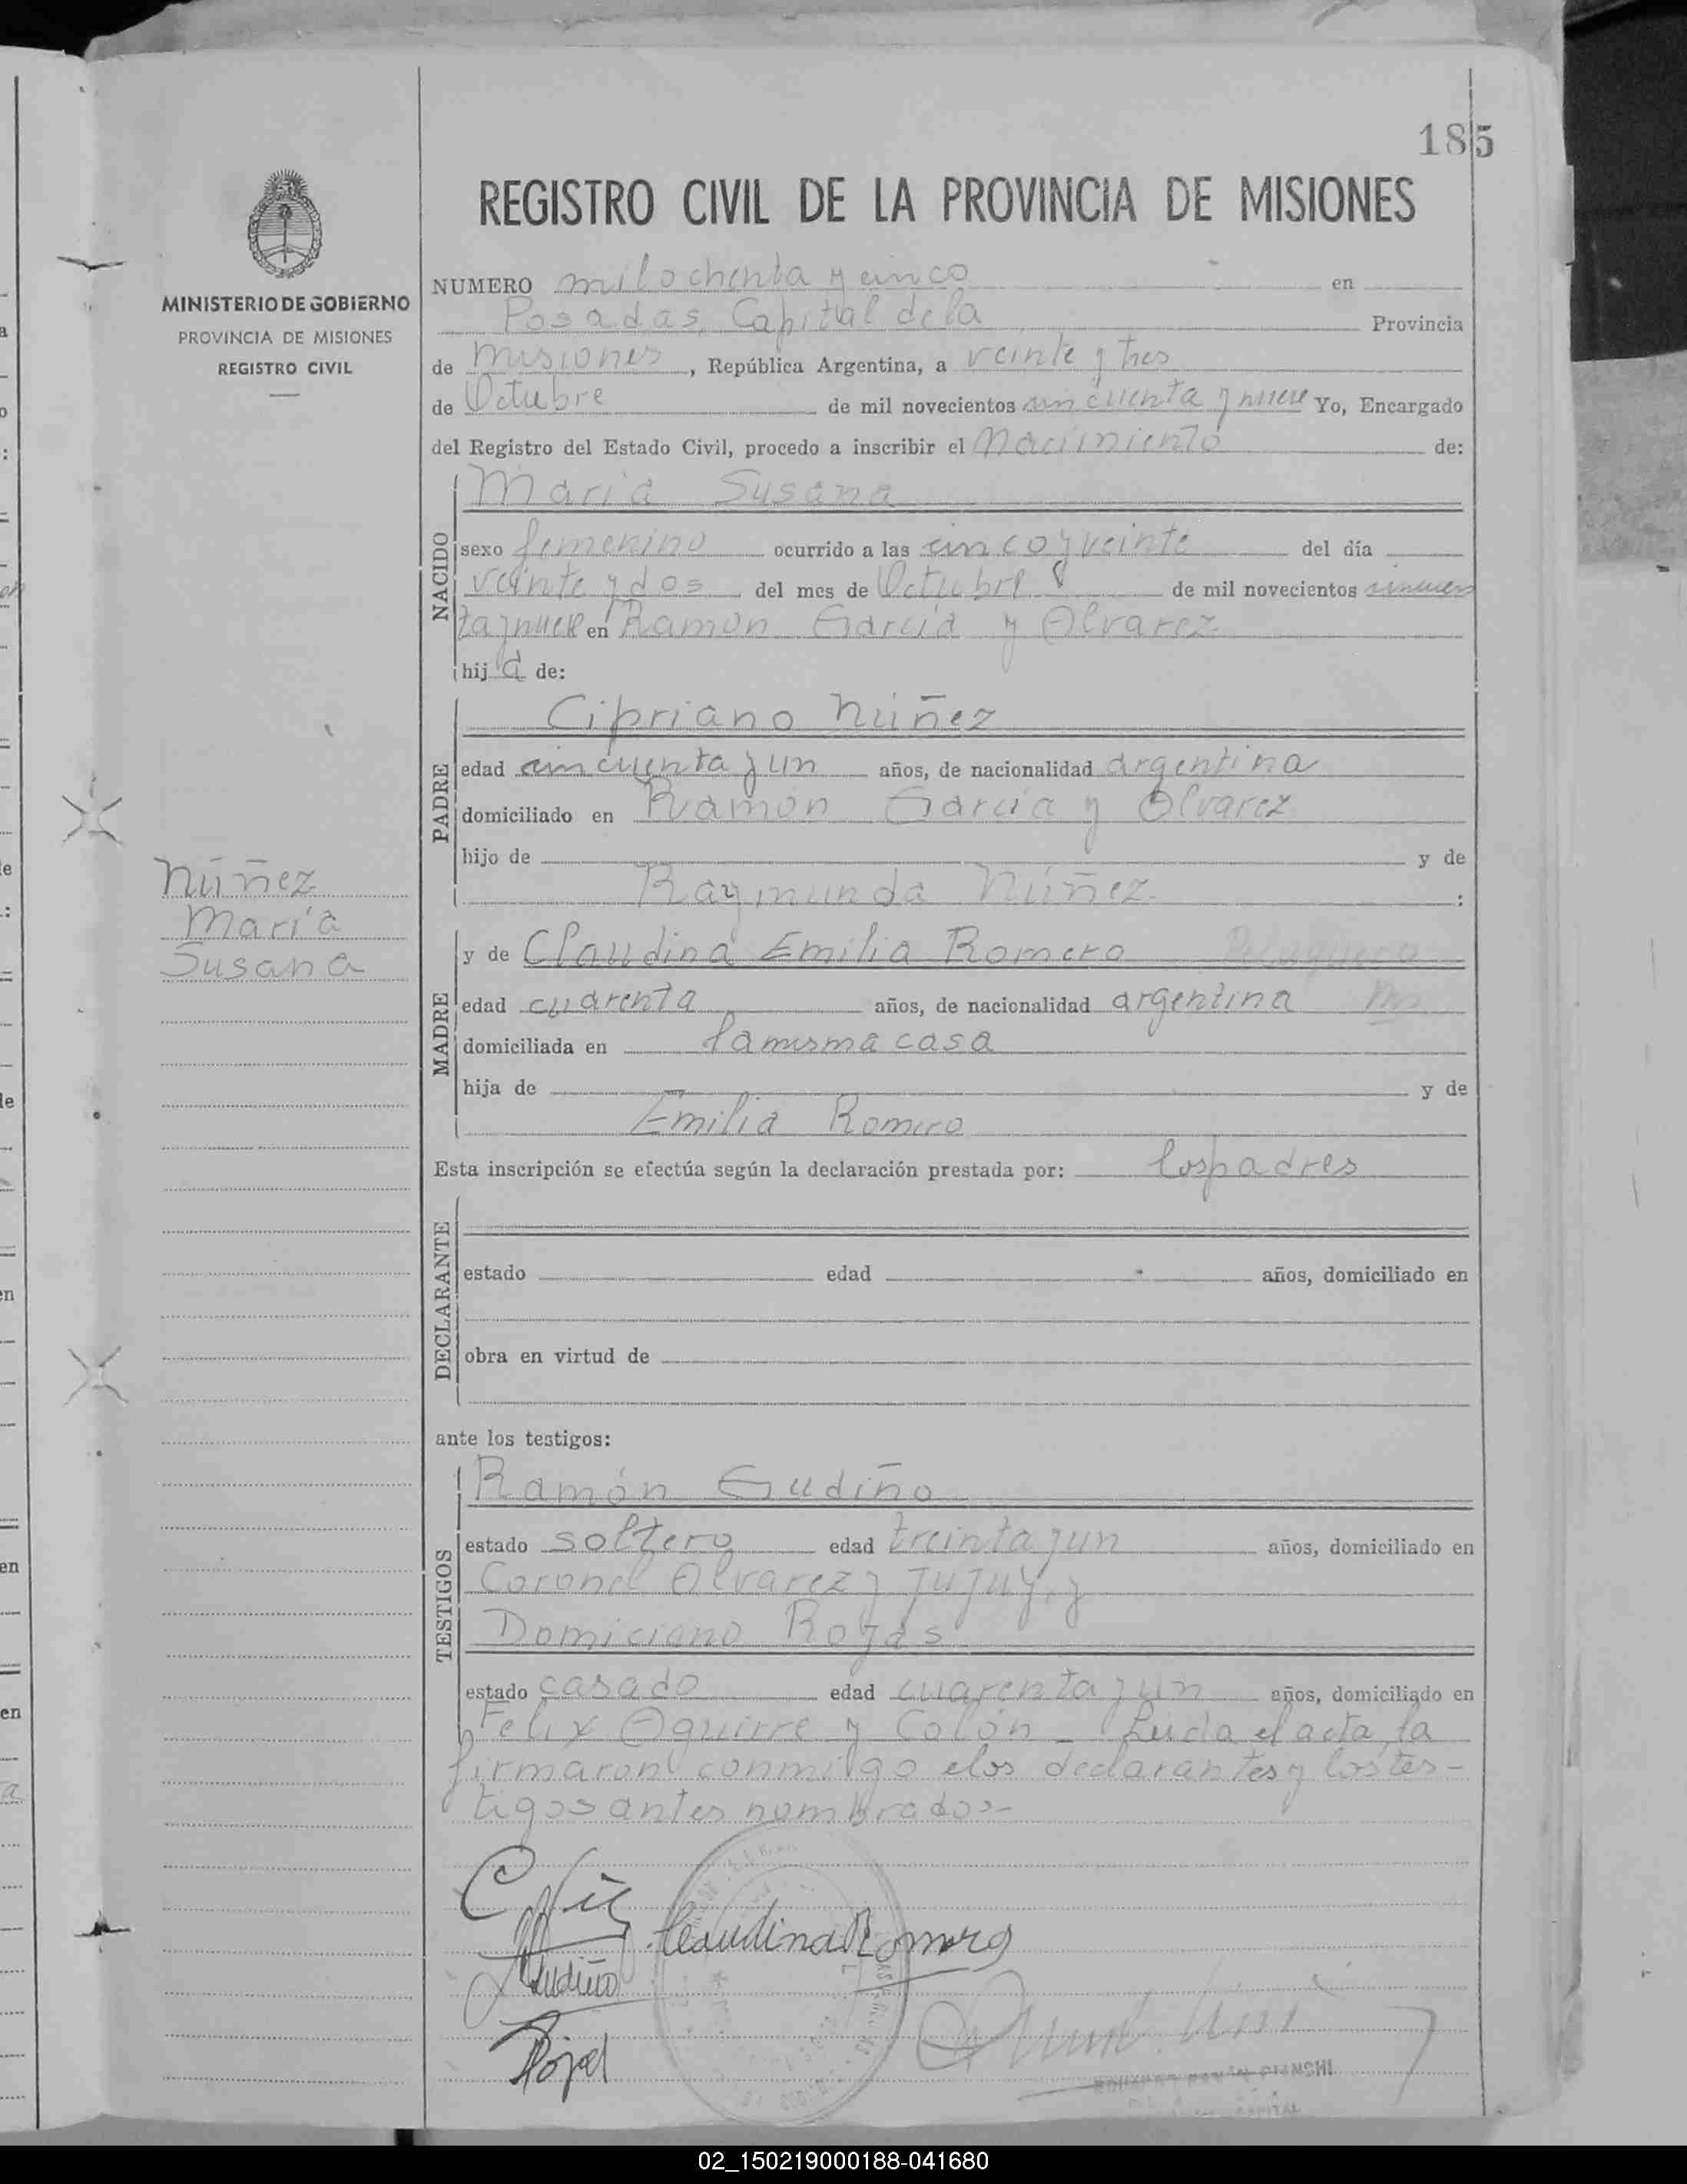 185
REGISTRO CIVIL DE LA PROVINCIA DE MISIONES
MINISTERIO DE GOBIERNO
PROVINCIA DE MISIONES
REGISTRO CIVIL
NUMERO mil ochenta y cinco en
Posadas, Capital de la Provincia
de Misiones, República Argentina, a veinte y tres
de Octubre de mil novecientos cincuenta y nueve Yo, Encargado
del Registro del Estado Civil, procedo a inscribir el Nacimiento de:
NACIDO
María Susana
sexo femenino ocurrido a las cinco y veinte del día
veinte y dos del mes de Octubre de mil novecientos cincuen
ta y nueve en Ramón García y Alvarez
hija de:
PADRE
Cipriano Núñez
edad cincuenta y un años, de nacionalidad argentina
domiciliado en Ramón García y Alvarez
hijo de y de
Raymunda Núñez :
Núñez
María
Susana
MADRE
y de Claudina Emilia Romero
edad cuarenta años, de nacionalidad argentina
domiciliada en la misma casa
hija de y de
Emilia Romero
Esta inscripción se efectúa según la declaración prestada por: los padres
DECLARANTE
estado edad años, domiciliado en
obra en virtud de
ante los testigos:
TESTIGOS
Ramón Gudiño
estado soltero edad treinta y un años, domiciliado en
Coronel Alvarez y Jujuy, y
Domiciano Rojas
estado casado edad cuarenta y un años, domiciliado en
Felix Aguirre y Colón - Leída el acta, la
firmaron conmigo los declarantes y los tes-
tigos antes nombrados-
Claudina Romero
Gudiño
Rojas
BIANCHI
CAPITAL
02_150219000188-041680